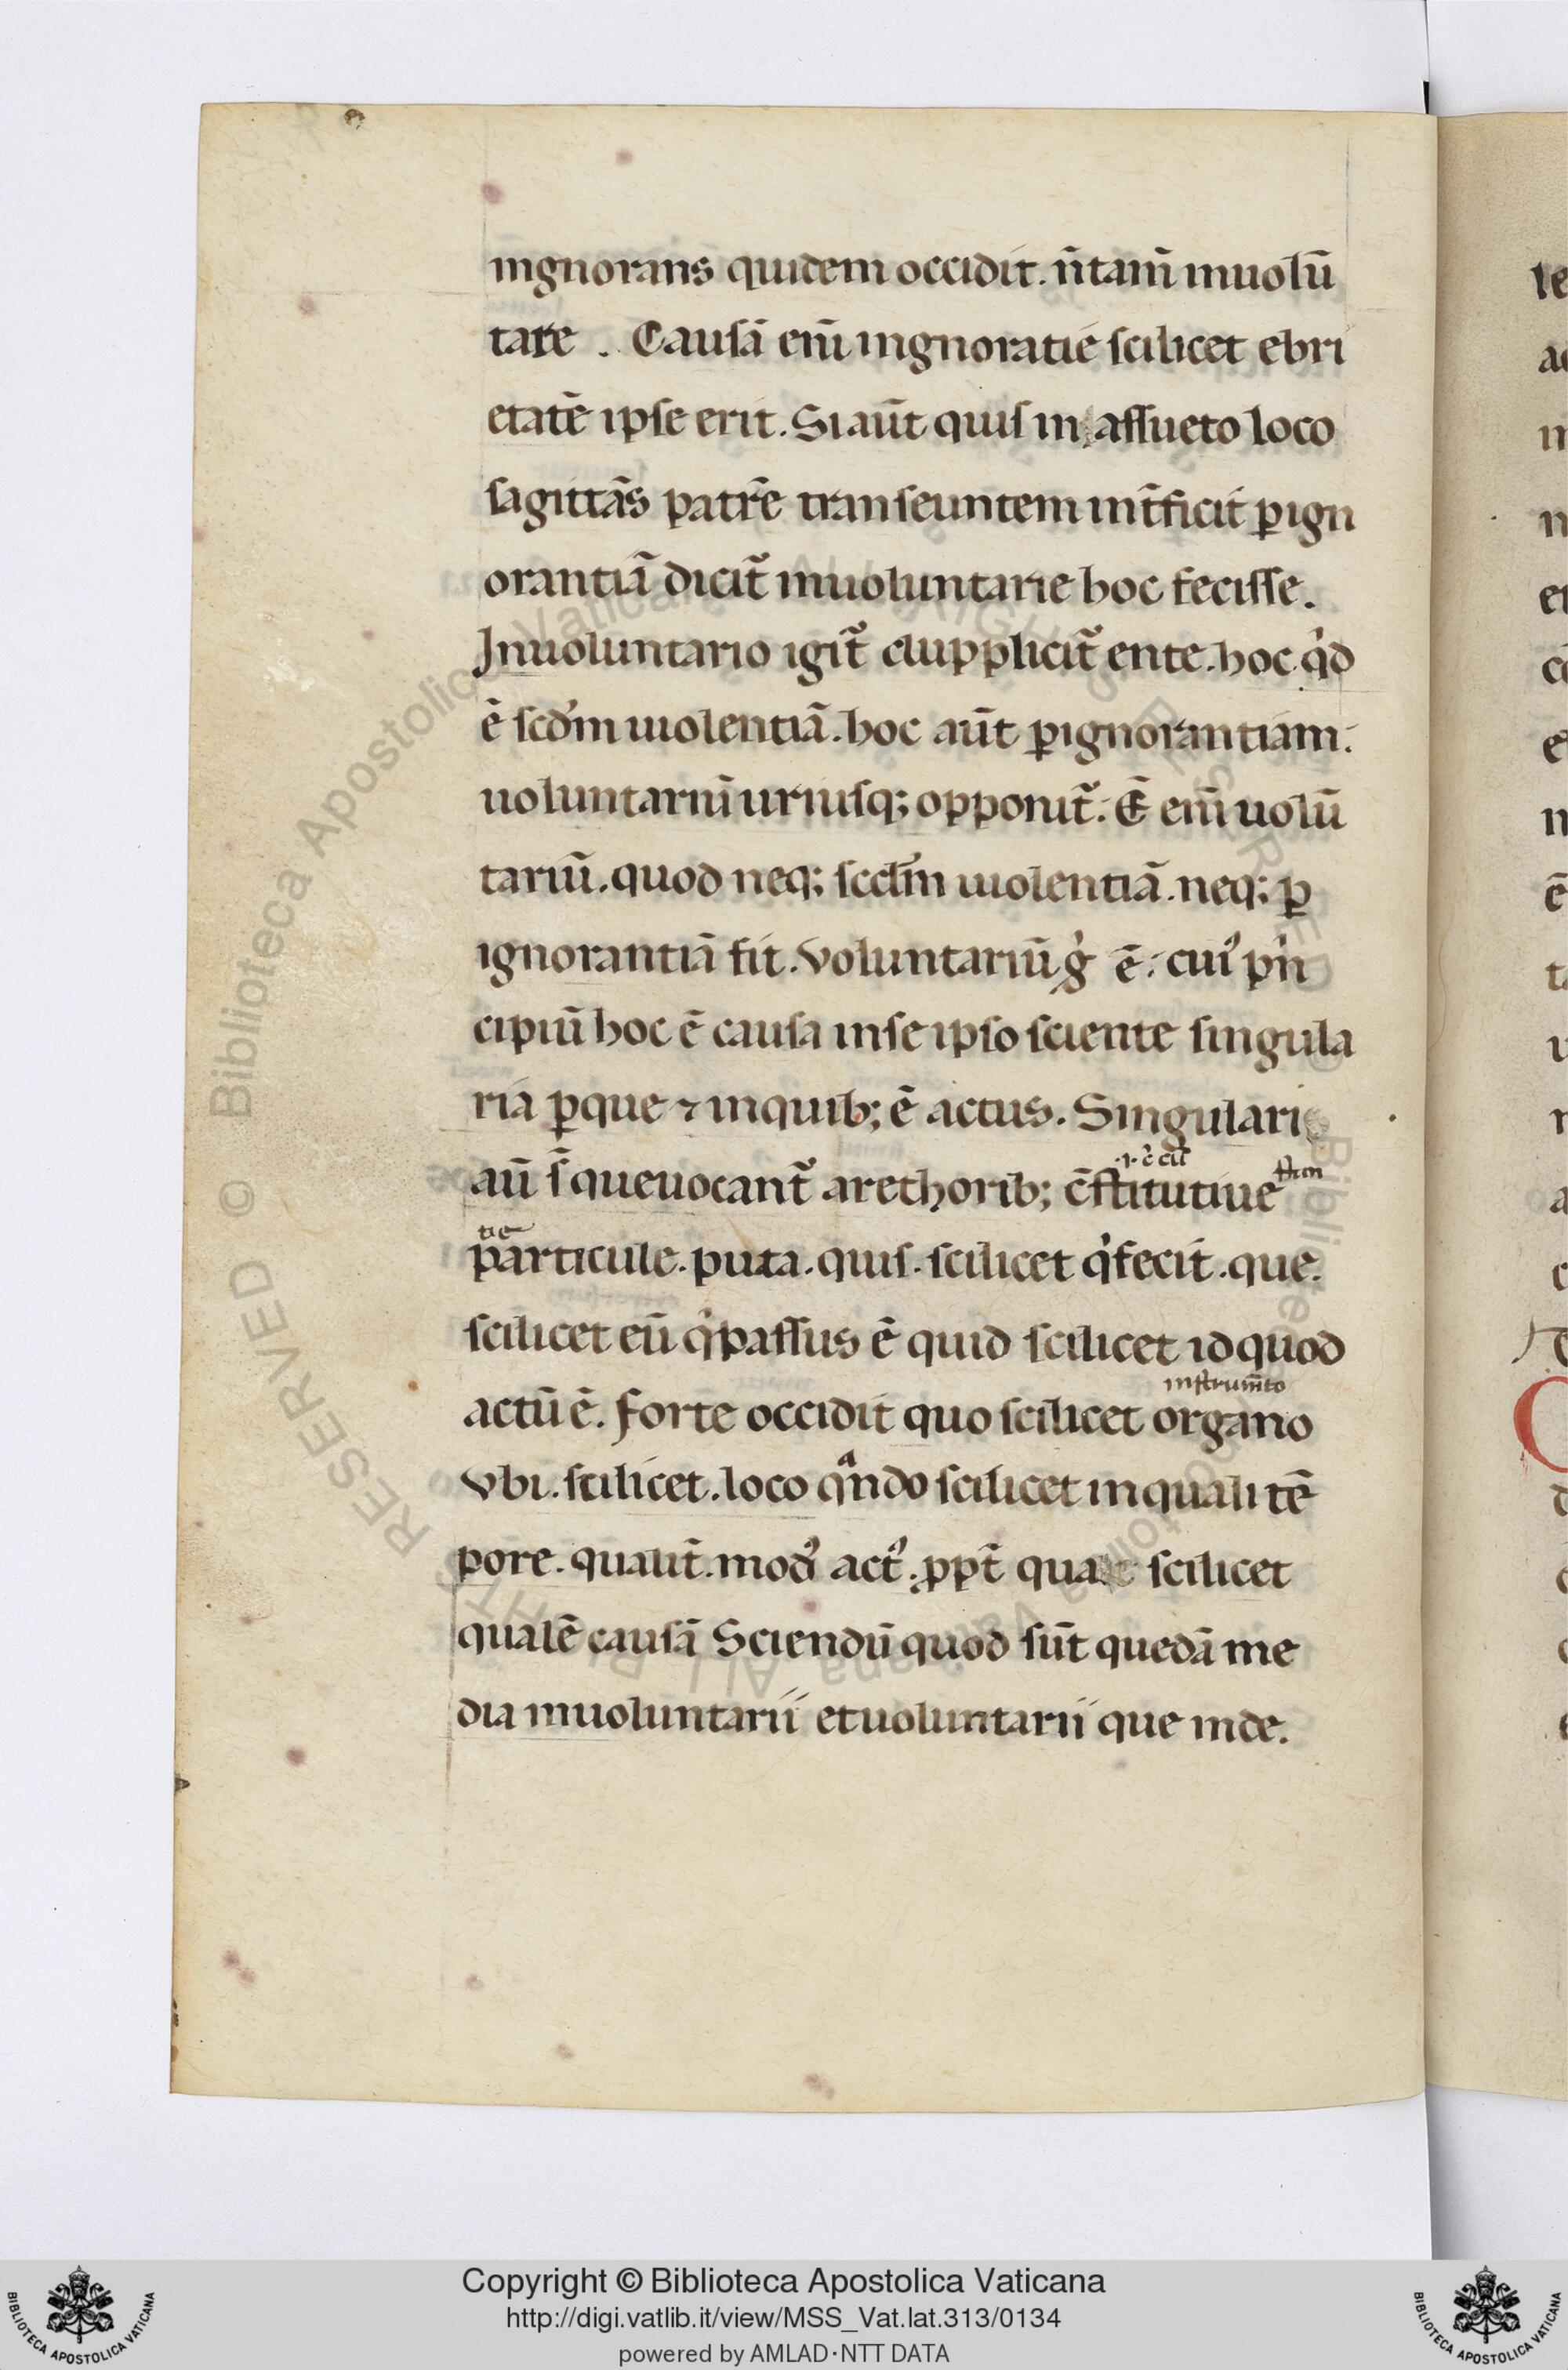 ingnorans quidem occidit. n̄ tam̄ inuolū
tare . Causā eni̅ ingnoratie scilicet ebri
etatē ipse erit. Si aūt quis in assueto loco
sagittās patrē transeuntem int̄ficit ꝑ ign
orantiā dicit᷑ inuoluntarie hoc fecisse.
Inuoluntario igit᷑ dupplicit᷑ ente. hoc qͥd
ē scd̄m uiolentiā. hoc aūt ꝑ ignorantiam.
uoluntariū utriusq; opponit᷑. Ē eni̅ uolū
tariū. quod neq; scd̄m uiolentiā. neq; ꝑ
ignorantiā fit. Voluntariū gͥ ē. cuiꝰ pͥn
cipiū hoc ē causa in se ipso sciente singula
ria ꝑ que ⁊ in quib; ē actus. Singulari
aū s̄ que uocant᷑ a rethorib; c̄stitutiue
particule. puta. quis. scilicet qͥ fecit. que.
scilicet eū qͥ passus ē quid scilicet id quod
instrum̄to
actū ē. forte occidit quo scilicet organo
Vbi. scilicet. loco qͣndo scilicet in quali tē
pore. qualit̄. modꝰ actꝰ. ꝓpt̄ scilicet
qualē causā Sciendū quod sūt quedā me
dia inuoluntarii et uoluntarii que inde.
RESERVED © Biblioteca Apostolica Vaticana
Copyright © Biblioteca Apostolica Vaticana
http://digi.vatlib.it/view/MSS_Vat.lat.313/0134
powered by AMLAD·NTT DATA
BIBLIOTECA APOSTOLICA VATICANA
BIBLIOTECA APOSTOLICA VATICANA